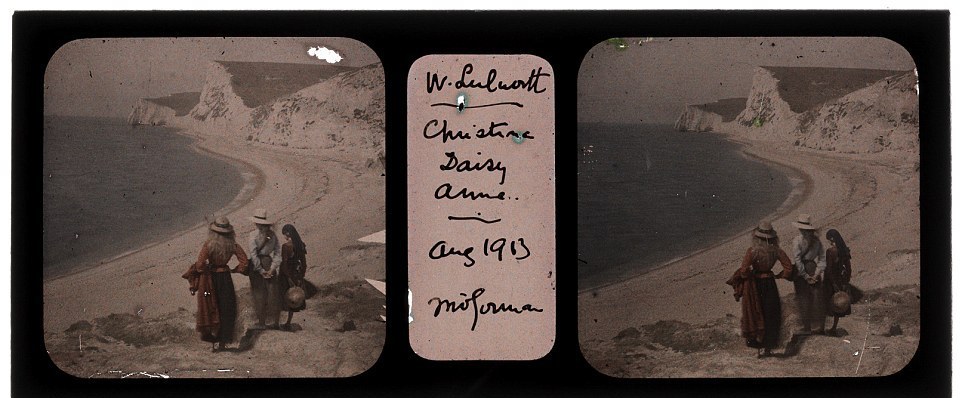 W. Lulworth
Christina
Daisy
Anne..
Aug 1913
MOGorman